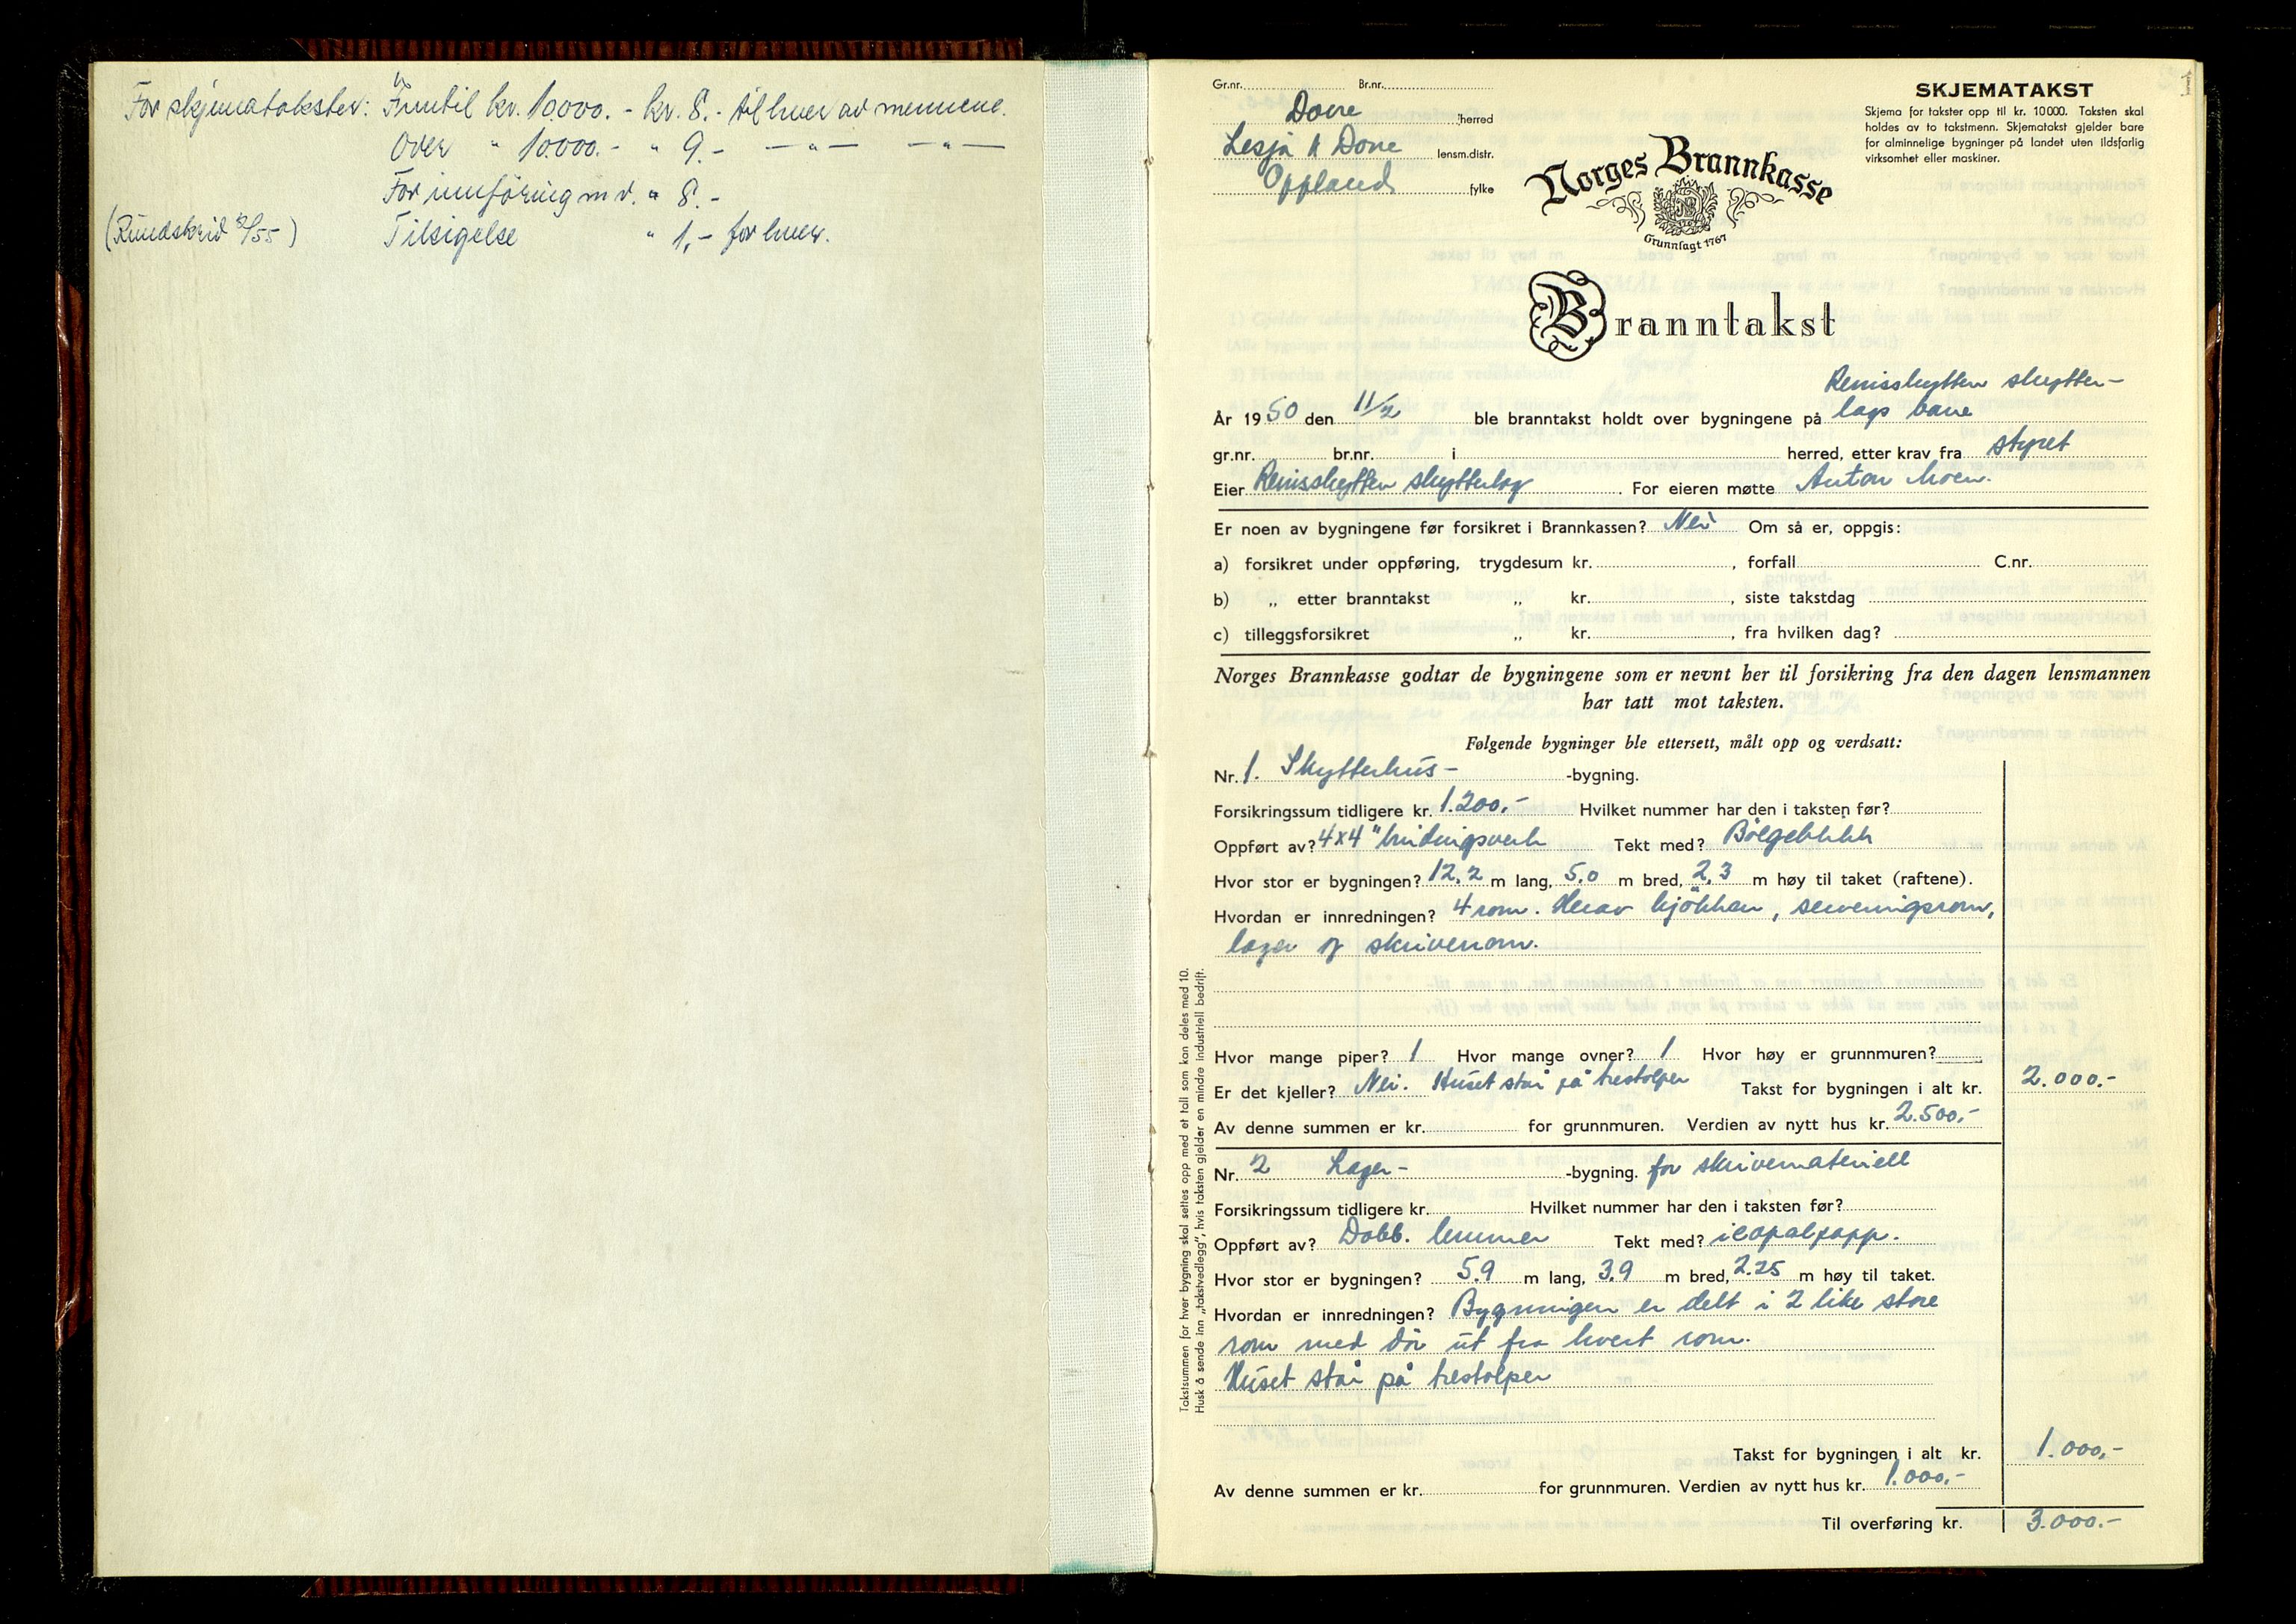 For skjematakster: Inntil kr. 10.000.- kr. 8.- til hver av mennene.
Over " 10000.- " 9.- —"— —"—
For innføring m.v. " 8.-
(Rundskriv /55) Tilsigelse " 1,- for hver.
1
Gr.nr. Br.nr.
Dovre herred
Lesja & Dovre lensm.distr.
Oppland fylke
SKJEMATAKST
Skjema for takster opp til kr. 10000. Taksten skal
holdes av to takstmenn. Skjematakst gjelder bare
for alminnelige bygninger på landet uten ildsfarlig
virksomhet eller maskiner.
Norges Brannkasse
Grunnlagt 1767
Branntakst
skytter-
År 1950 den 11/2 ble branntakst holdt over bygningene på lags bane
gr.nr. br.nr. i herred, etter krav fra styret
Eier skytterlag. For eieren møtte Anton Moen.
Er noen av bygningene før forsikret i Brannkassen? Nei Om så er, oppgis:
a) forsikret under oppføring, trygdesum kr. , forfall C.nr.
b) „ etter branntakst „ kr. , siste takstdag
c) tilleggsforsikret „ kr. , fra hvilken dag?
Norges Brannkasse godtar de bygningene som er nevnt her til forsikring fra den dagen lensmannen
har tatt mot taksten.
Følgende bygninger ble ettersett, målt opp og verdsatt:
Nr. 1. Skytterhus- -bygning.
Forsikringssum tidligere kr. 1.200,- Hvilket nummer har den i taksten før?
Oppført av? 4x4" bindingsverk Tekt med? Bölgeblikk
Hvor stor er bygningen? 12.2 m lang, 5.0 m bred, 2,3 m høy til taket (raftene).
Hvordan er innredningen? 4 rom. Herav kjökken, serveringsrom,
lager og skriverrom.
Hvor mange piper? 1 Hvor mange ovner? 1 Hvor høy er grunnmuren?
Er det kjeller? Nei. Huset står på trestolper Takst for bygningen i alt kr. 2.000.-
Av denne summen er kr. for grunnmuren. Verdien av nytt hus kr. 2.500,-
Nr. 2 Lager- -bygning. for skivemateriell
Forsikringssum tidligere kr. Hvilket nummer har den i taksten før?
Oppført av? Dobb. lemmer Tekt med? icopalpapp.
Hvor stor er bygningen? 5.9 m lang, 3.9 m bred, 2.25 m høy til taket.
Hvordan er innredningen? Bygningen er delt i 2 like store
rom med dör ut fra hvert rom.
Huset står på trestolper
Takst for bygningen i alt kr. 1.000,-
Av denne summen er kr. for grunnmuren. Verdien av nytt hus kr. 1.000.-
Til overføring kr. 3.000.-
Takstsummen for hver bygning skal settes opp med et tall som kan deles med 10.
Husk å sende inn „takstvedlegg", hvis taksten gjelder en mindre industriell bedrift.